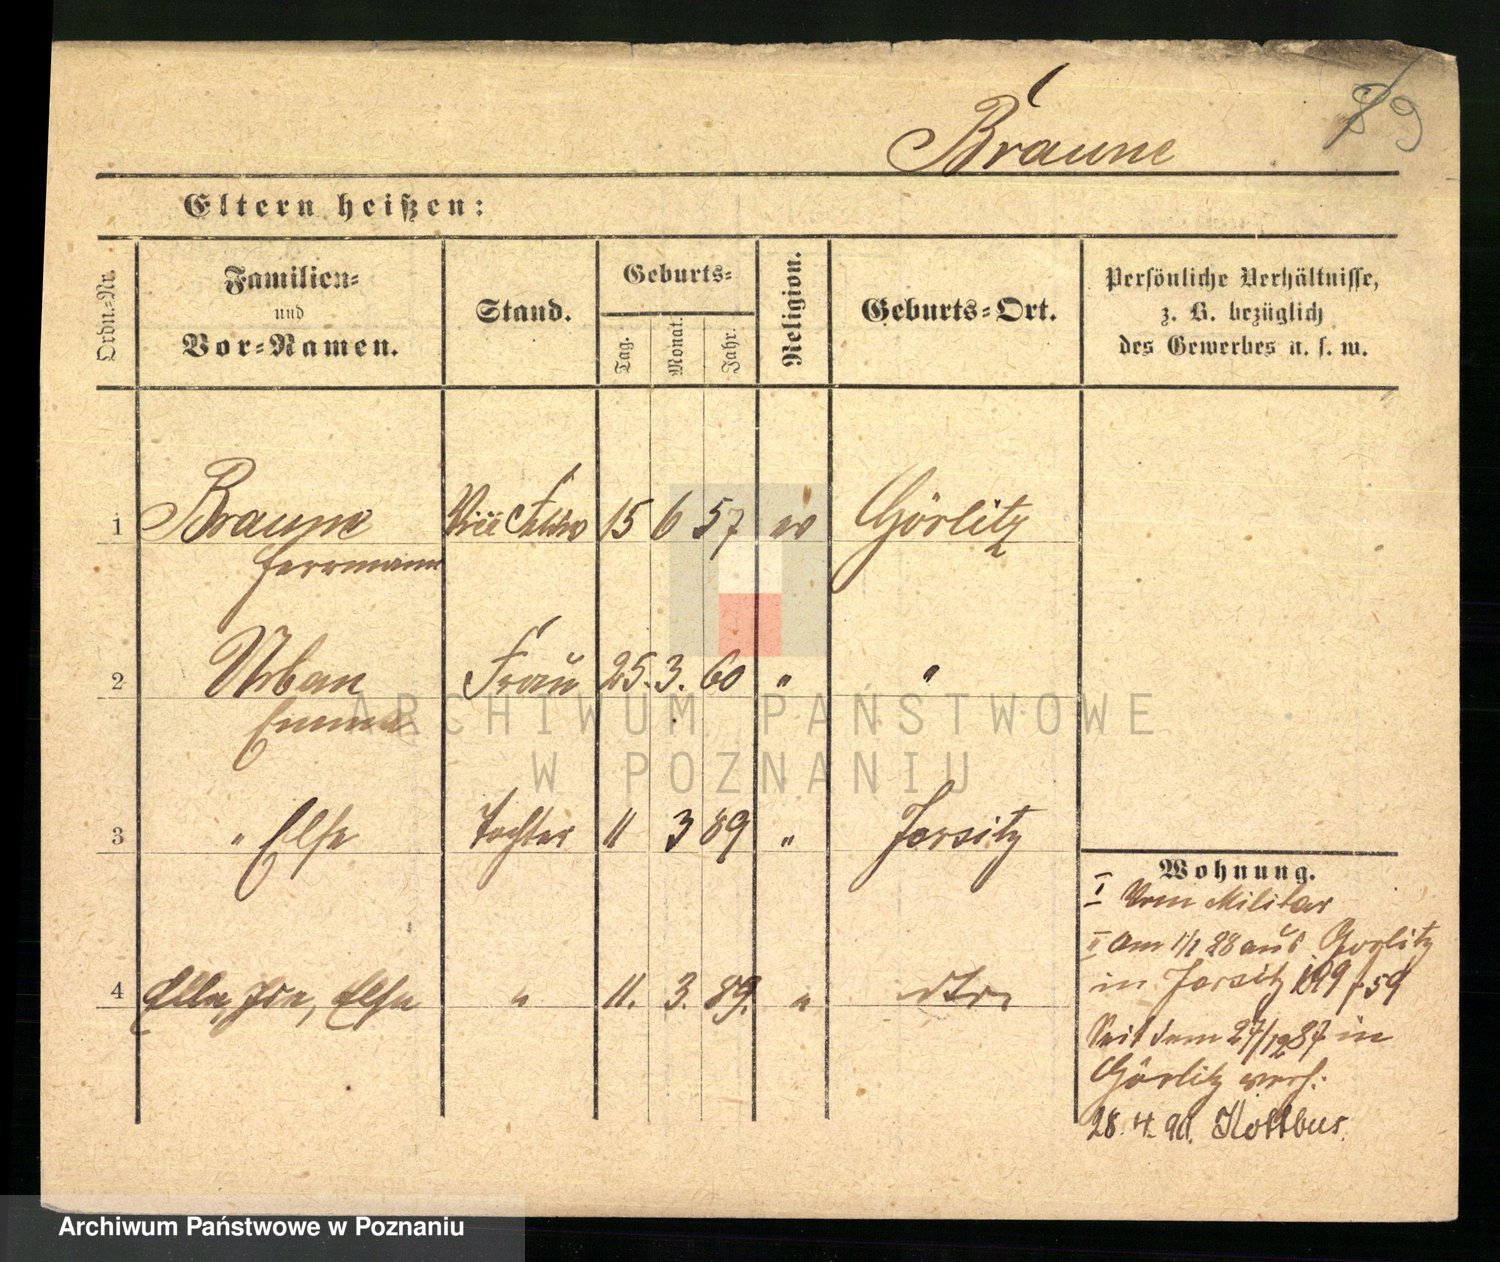 Braune
89
Eltern heißen:
Ordn.-Nr.
Familien-
und
Vor-Namen.
Stand.
Geburts-
Tag.
Monat.
Jahr.
Religion.
Geburts-Ort.
Persönliche Verhältnisse,
z. B. bezüglich
des Gewerbes u. s. w.
1 Braune Vice Feldw 15 6 57 ev Görlitz
Herrmann
2 Urban Frau 25. 3. 60 " "
Emma
3 " Else Tochter 11 3 89 " Jersitz
4 Ella, Ida, Else " 11. 3. 89. " dto
Wohnung.
I Vom Militar
II am 1/1 88 aus Goerlitz
in Jersitz 199 f. 59
Seit dem 27/12 87 in
Görlitz verh.
28. 4. 90. Kottbus.
ARCHIWUM PAŃSTWOWE
W POZNANIU
Archiwum Państwowe w Poznaniu